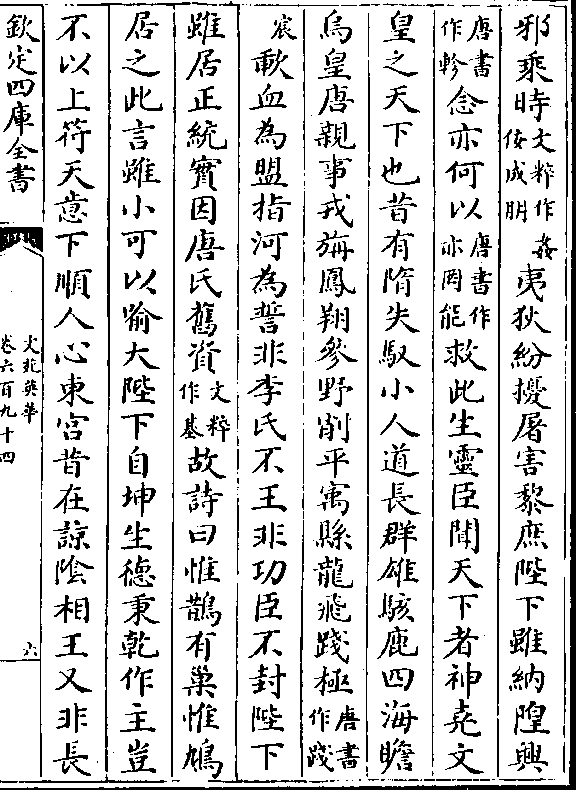 邪乘時文粹作姦佞成朋夷狄紛擾屠害黎庶陛下雖納隍興
唐書作軫念亦何以唐書作亦罔能救此生靈臣聞天下者神堯文
皇之天下也昔有隋失馭小人道長群雄駭鹿四海瞻
烏皇唐親事戎旃鳳翔參野削平㝢縣龍飛踐極唐書作踐
宸歃血為盟指河為誓非李氏不王非功臣不封陛下
雖居正統實因唐氏舊資文粹作基故詩曰惟鵲有巢惟鳩
居之此言雖小可以喻大陛下自坤生德秉乾作主豈
不以上符天意下順人心東宮昔在諒陰相王又非長
欽定四庫全書
文苑英華
卷六百九十四
六